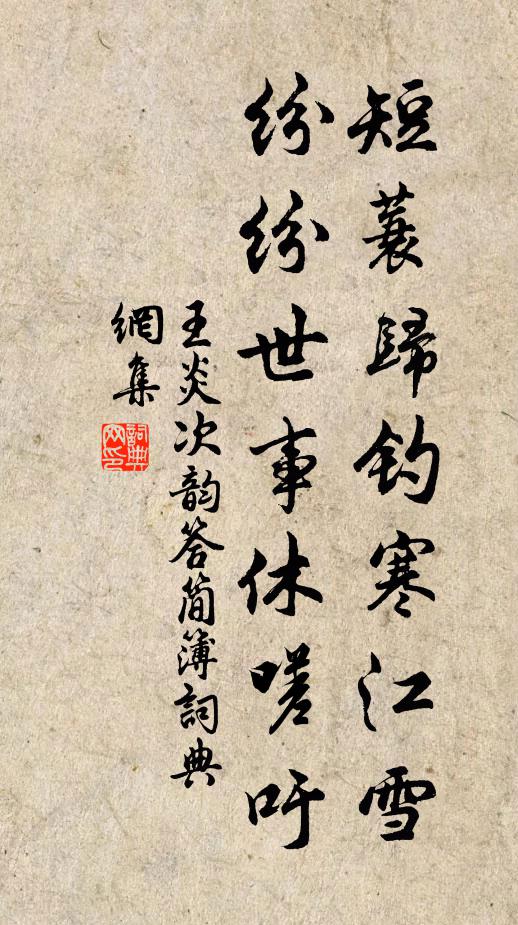 短蓑歸钓寒江雪
纷纷世事休嗟吁
王炎次韵答简簿詞典
網集
詞典网印